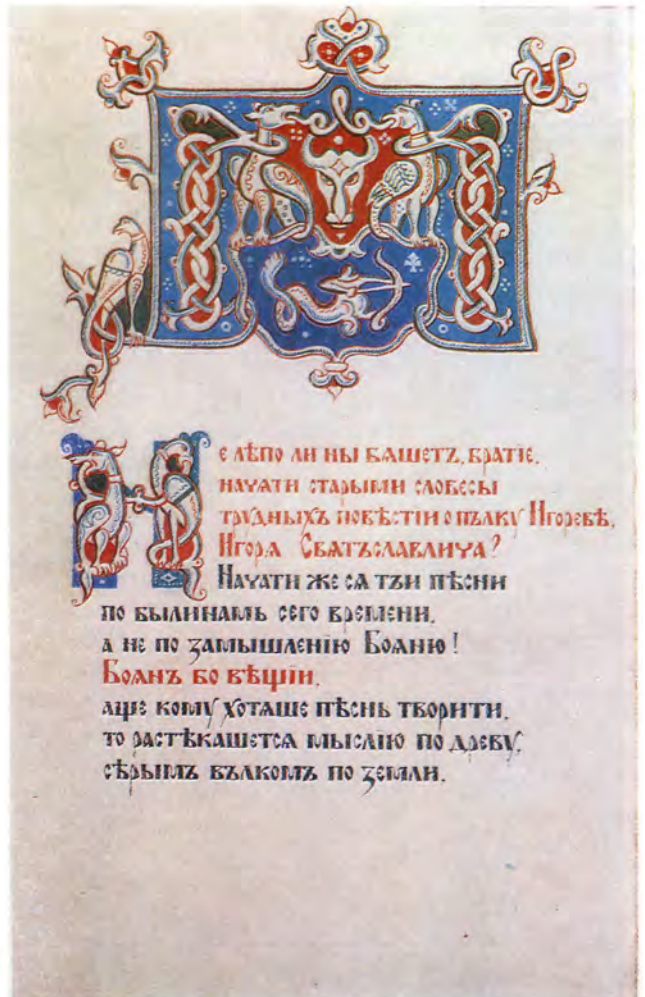 Не лѣпо ли ны бяшетъ, братіе,
начяти старыми словесы
трудныхъ повѣстіи о пълку Игоревѣ,
Игоря Святъславлича?
Начати же ся тъи пѣсни
по былинамь сего времени,
а не по замышленію Бояню!
Боянъ бо вѣщіи,
аще кому хотяше пѣснь творити,
то растѣкашется мыслію по древу,
сѣрымъ вълкомъ по земли,